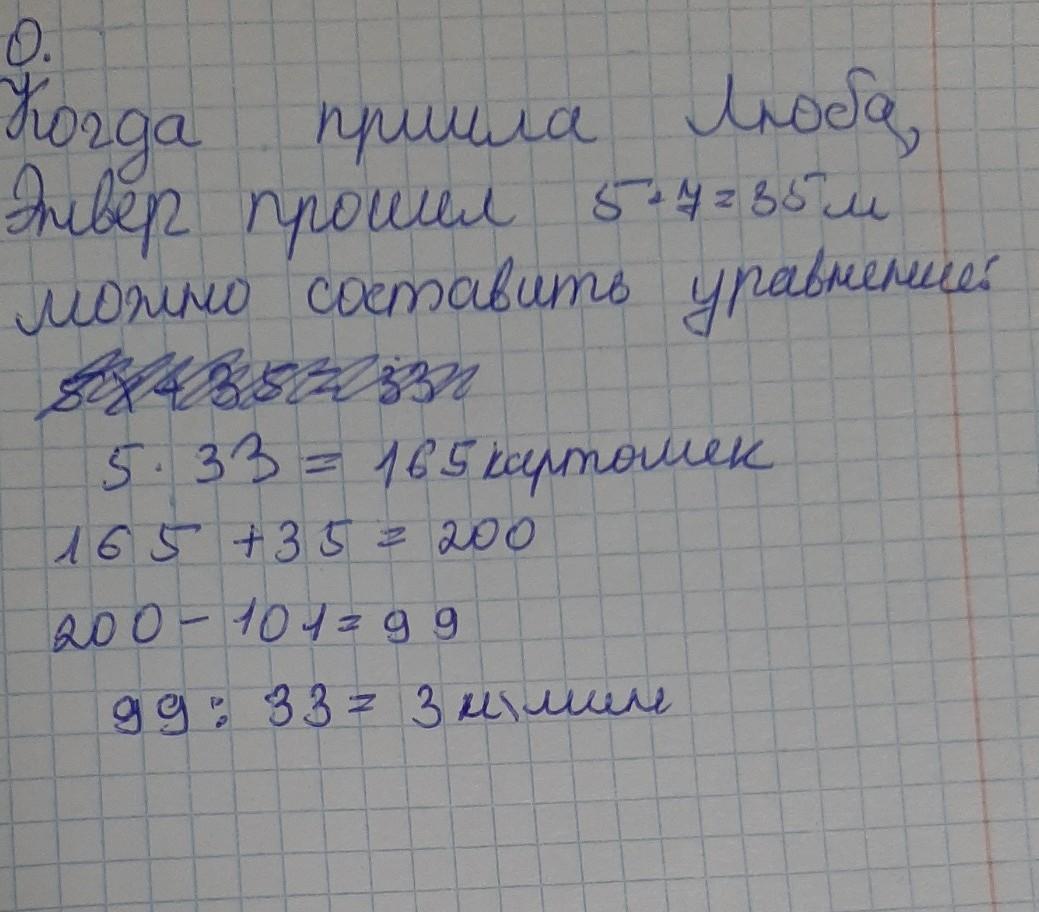 О.
Когда пришла Люба,
Энвер прошел 5·7=35 м
можно составить уравнение:
5·33 = 165 картошек
165+35=200
200-101=99
99:33=3 м\мин